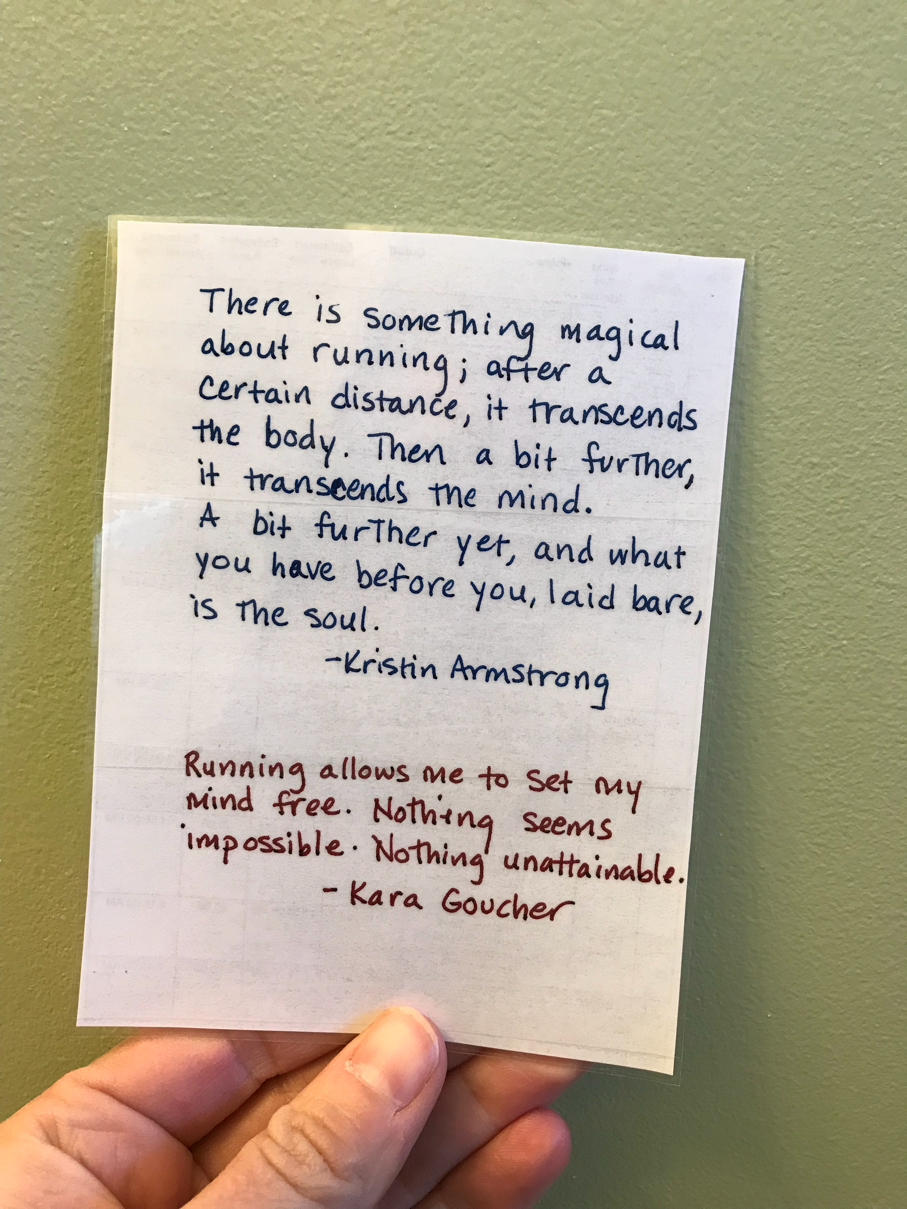 There is something magical
about running; after a
certain distance, it transcends
the body. Then a bit further,
it transcends the mind.
A bit further yet, and what
you have before you, laid bare,
is the soul.
-Kristin Armstrong
Running allows me to set my
mind free. Nothing seems
impossible. Nothing unattainable.
- Kara Goucher